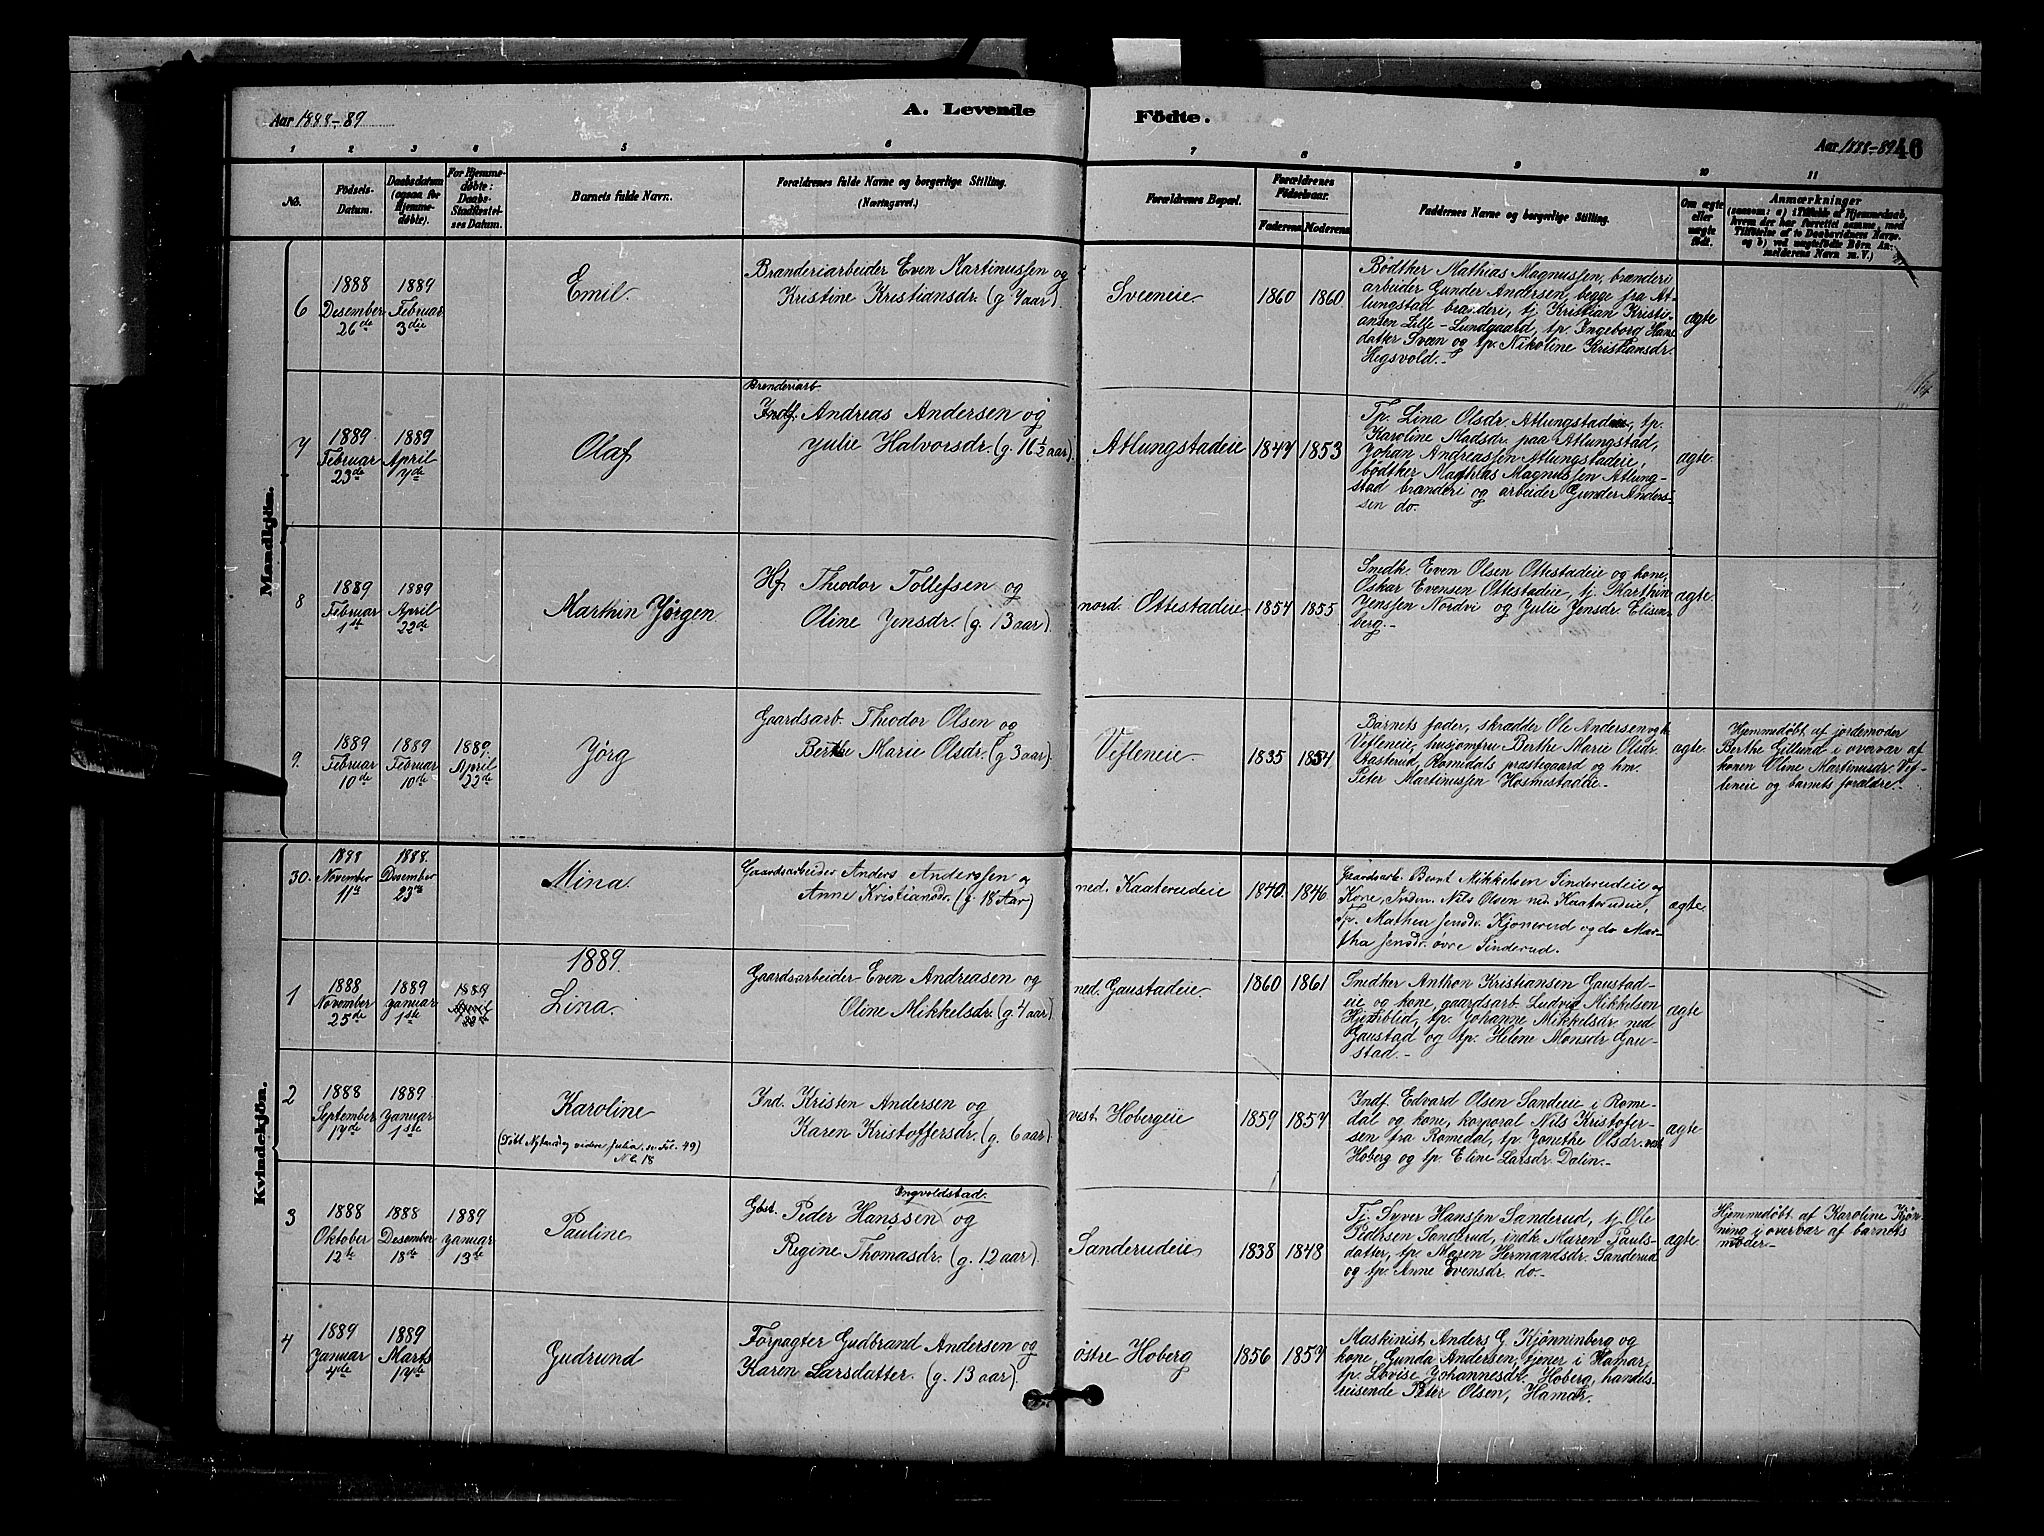 Aar 1888-89
A. Levende
Födte.
Aar 1888-89
46
1 2 3 4 5 6 7 8 9 10 11
No.
Födsels-
Datum.
Daabsdatum
(ogsaa for
Hjemme-
døbte).
For Hjemme-
døbte:
Daabs-
Stadfæstel-
ses Datum.
Barnets fulde Navn.
Forældrenes fulde Navne og borgerlige Stilling.
(Næringsvei.)
Forældrenes Bopæl.
Forældrenes
Födselsaar.
Faderens
Moderens
Faddernes Navne og borgerlige Stilling.
Om ægte
eller
uægte
født.
Anmærkninger
(saasom: a) i Tilfælde af Hjemmedaab,
hvem der har forrettet samme, med
Tilføielse af to Daabsvidners Navne,
og b) ved uægtefødte Børn An-
melderens Navn m. V.)
Mandkjön.
6
1888
Desember
26de
1889
Februar
3die
Emil.
Branderiarbeider Even Martinussen og
Kristine Kristiansdr. (g. 7 aar)
Sveeneie
1860
1860
Bödtker Mathias Magnussen, brænderi
arbeider Gunder Andersen, begge fra At-
lungstad brænderi, tj. Kristian Kristi-
ansen Lille-Lundgaard, tp Ingeborg Hans
datter Sveen og tp. Nikoline Kristiansdr.
Hegsvold.-
ægte
7
1889
Februar
23de
1889
April
7de
Olaf
Brenderiarb
Indf. Andreas Andersen og
Julie Halvorsdr. (g. 16½ aar)
Atlungstadeie
1847
1853
Tp. Lina Olsdr. Atlungstadeie, tp.
Karoline Madsdr. paa Atlungstad,
Johan Andreassen Atlungstadeie,
bödtker Mathias Magnussen Atlung-
stad brænderi og arbeider Gunder Anders-
sen do.
ægte.
8
1889
Februar
1ste
1889
April
22de
Marthin Jörgen.
Hf. Theodor Tollefsen og
Oline Jensdr. (g. 13 aar)
nord. Ottestadeie
1854
1855
Snedk. Even Olsen Ottestadeie og kone,
Oskar Evensen Ottestadeie, tj. Marthin
Jenssen Nordvi og Julie Jensdr. Elisen-
berg.-
ægte
9.
1889
Februar
10de
1889
Februar
10de
1889.
April
22de
Jörg
Gaardsarb. Theodor Olsen og
Berthe Marie Olsdr. (g 3 aar)
Vefleneie
1835
1854
Barnets fader, skrædder Ole Andersen
Vefleneie, husjomfru Berthe Marie Olsdr.
Stasterud, Romedals præstegaard og hm.
Peter Martinussen Hosmestadeie.-
ægte
Hjemmedöbt af jordemoder
Berthe Gillund i overvær af
konen Oline Martinusdr. Vef-
leneie og barnets forældre.-
Kvindekjön.
30.
1888
November
11te
1888.
Desember
23de
Mina.
Gaardsarbeider Anders Anderssen og
Anne Kristiansdr. (g. 18 Aar)
ned. Kaaterudeie
1840.
1846
Gaardsarb. Bernt Mikkelsen Sinderudeie og
Kone, Inden. Nils Olsen ned. Kaaterudeie,
Tp. Mathea Jensdr. Kjonerud og do Mar-
tha Jensdr. övre Sinderud.
ægte.
1889.
1
1888
November
25de
1889
Januar
1ste
1889
April
Lina.
Gaardsarbeider Even Andreasen og
Oline Mikkelsdr. (g. 4 aar)
ned. Gaustadeie.
1860
1861
Snedker Anthon Kristiansen Gaustad-
eie og kone, gaardsarb. Ludvig Mikkelsen
Hjemblid, tp. Johanne Mikkelsdr. ned
Gaustad og tp. Helene Monsdr Gau-
stad.-
ægte
2
1888
September
17de
1889
Januar
1ste
Karoline
(Döbt Nytaarsdag videre Julia. se Fol. 49)
No. 18
Ind. Kristen Andersen og
Karen Kristoffersdr. (g. 6 aar)
vest. Hobergeie
1859
1857
Indf. Edvard Olsen Sandeie i Rome-
dal og kone, korporal Nils Kristofer-
sen fra Romedal, tp. Jonethe Olsdr. vest
Hoberg og tp. Eline Larsdr. Dalin.-
ægte
3
1888
Oktober
12te
1888
Desember
18de
1889
Januar
13de
Pauline
Ingvoldstad.
Gbst. Peder Hanssen og
Regine Thomasdr. (g. 12 aar)
Sanderudeie
1838
1848
Tj. Syver Hanssen Sanderud, tj. Ole
Pedersen Sanderud, indk. Maren Pauls-
datter, tp. Maren Hermandsdr. Sanderud
og tp. Anne Evensdr. do.-
ægte
Hjemmedöbt af Karoline Kjøn-
ning i overvær af barnets
moder-
4
1889
Januar
4de
1889
Marts
17de
Gudrund
Forpagter Gudbrand Andersen og
Karen Larsdatter. (g. 13 aar)
østre Hoberg
1856
1857
Maskinist Anders G. Kjønninberg og
kone, Gunda Andersen, tjener i Hamar,
tp. Lovise Johannesdr. Hoberg, handels-
reisende Peter Olsen, Hamar.